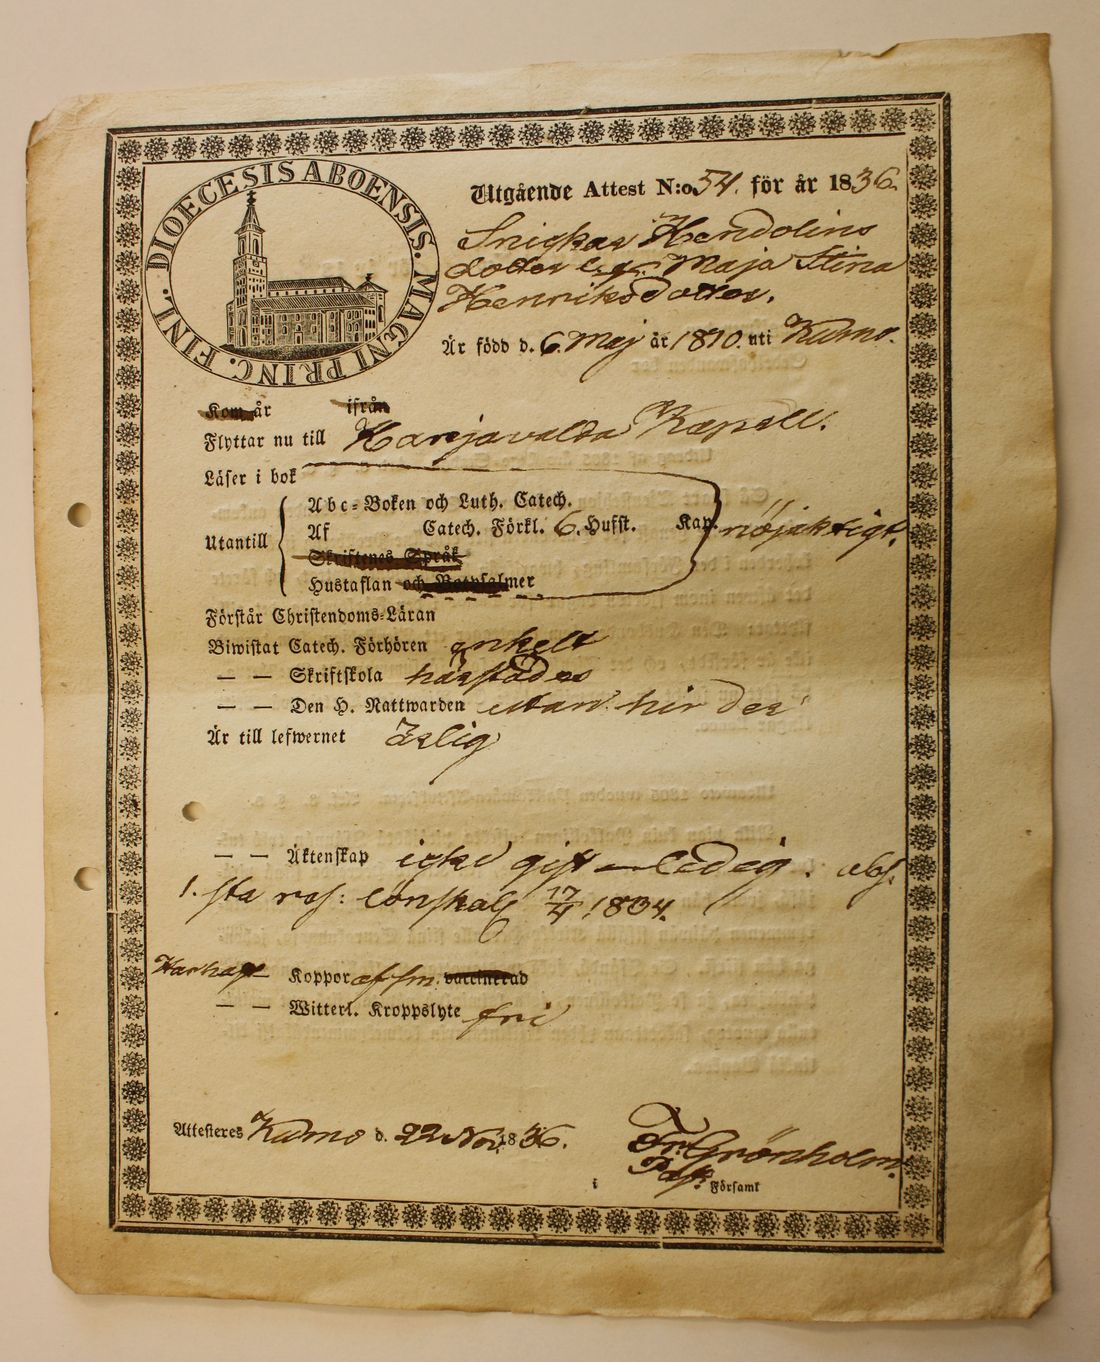 DIOECESIS ABOENSIS. MAGNI PRINC. FINL.
Utgående Attest N:o 54. för år 1836.
Snigkar Hendolins
dotter Maja Stina
Henriksdotter.
Är född d. 6. Maj år 1810. uti Kumo.
Kom år ifrån
Flyttar nu till Harjavalda Kapell.
Läser i bok
Utantill
Abc-Boken och Luth. Catech.
Af Catech. Förkl. 6. Hufst. Kap. nöjaktigt.
Skriftenes Språk
Hustaflan och Botpsalmer
Förstår Christendoms-Läran
Biwistat Catech. Förhören enkelt
— — Skriftskola härstädes
— — Den H. Nattwarden utan hinder
Är till lefwernet Ärlig
— — Äktenskap icke gift – ledig. abs.
1. sta res: lönskal. 17/4 1834.
Har haft Koppor vaccinerad
— — Witterl. Kroppslyte fri
Attesteres Kumo d. 22 Nov. 1836.
Fr. Grönholm.
Past.
i Församl